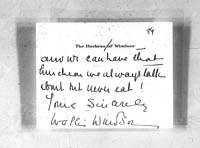 89
The Duchess of Windsor
and we can have that
luncheon we always talk
about but never eat!
Yours Sincerely
Wallis Windsor